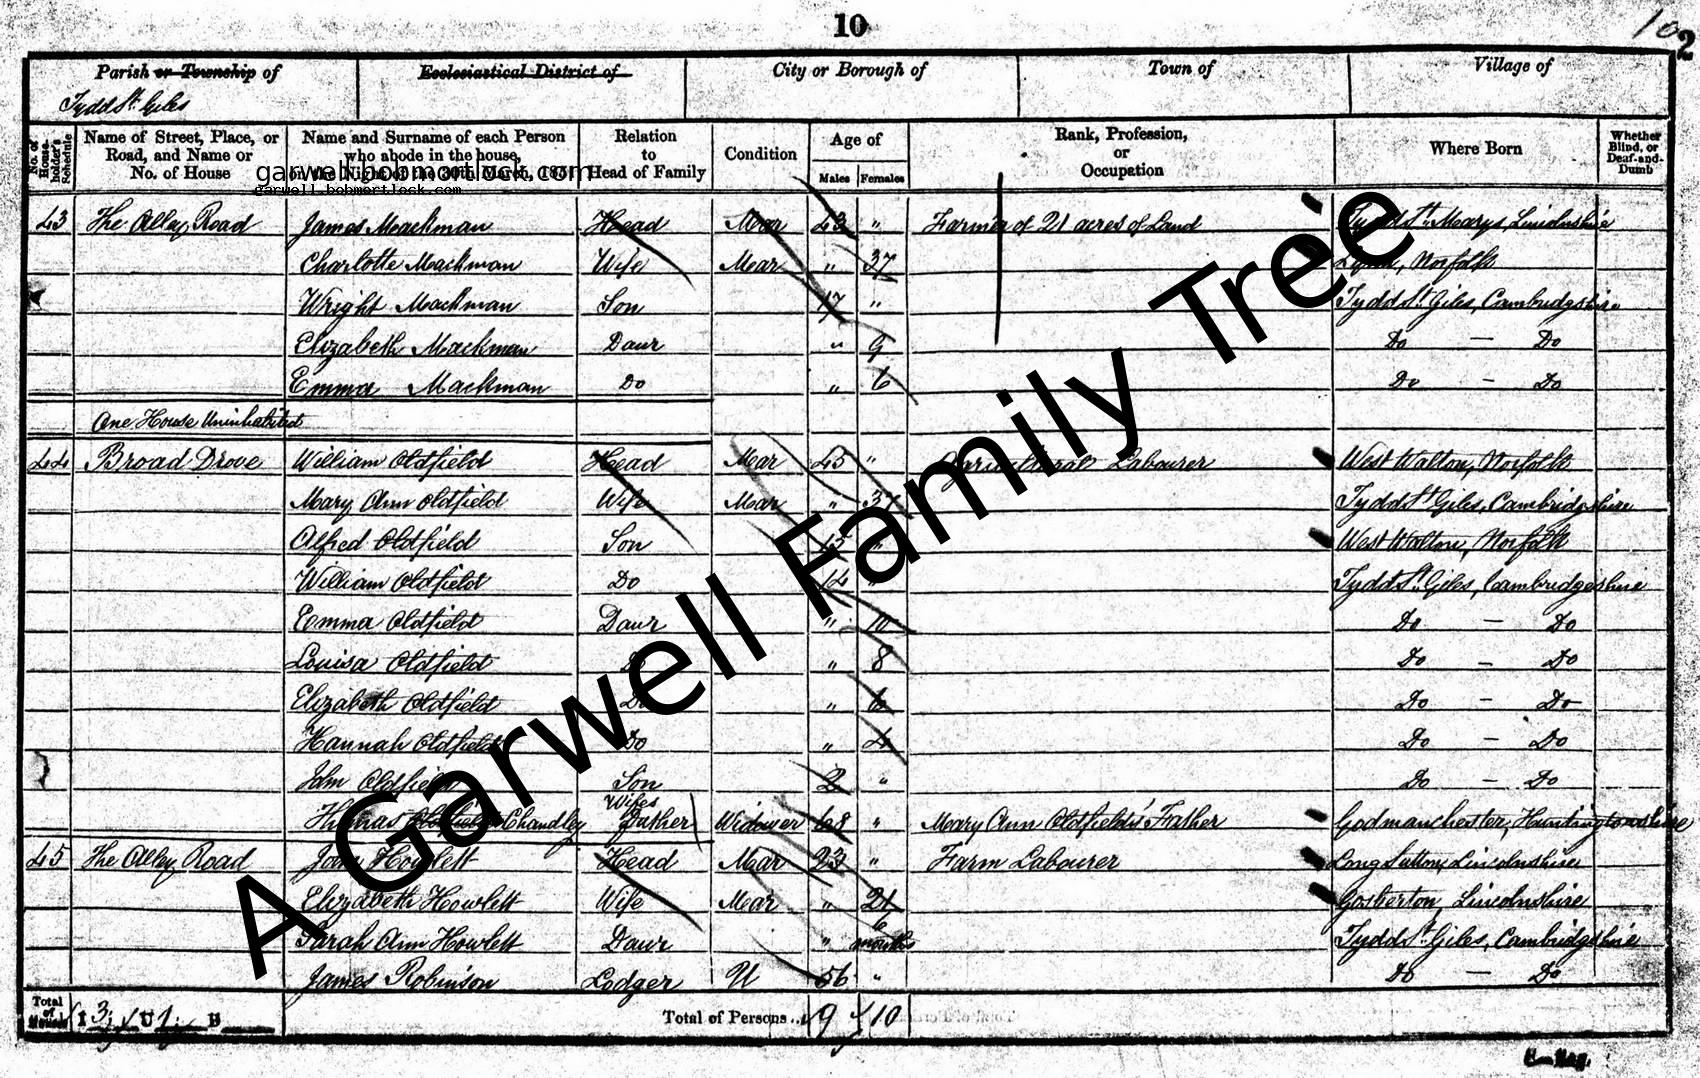 10
10 2
Parish or Township of
Ecclesiastical District of
City or Borough of
Town of
Village of
Tydd St. Giles
No. of House-holder's Schedule
Name of Street, Place, or Road, and Name or No. of House
Name and Surname of each Person who abode in the house, on the Night of the 30th March, 1851
Relation to Head of Family
Condition
Age of
Males
Females
Rank, Profession, or Occupation
Where Born
Whether Blind, or Deaf-and-Dumb
garwell.bobmortlock.com
garwell.bobmortlock.com
43 The Alley Road James Mackman Head Mar 43 " Farmer of 21 acres of Land Tydd St. Marys, Lincolnshire
Charlotte Mackman Wife Mar " 37 Lynn, Norfolk
Wright Mackman Son 17 " Tydd St. Giles, Cambridgshire
Elizabeth Mackman Daur " 9 Do — Do
Emma Mackman Do " 6 Do — Do
One House Uninhabited
44 Broad Drove William Oldfield Head Mar 45 " Agricultural Labourer West Walton, Norfolk
Mary Ann Oldfield Wife Mar " 37 Tydd St. Giles, Cambridgshire
Alfred Oldfield Son " West Walton, Norfolk
William Oldfield Do 14 " Tydd St. Giles, Cambridgeshire
Emma Oldfield Daur " 10 Do — Do
Louisa Oldfield Do " 8 Do — Do
Elizabeth Oldfield Do " 6 Do — Do
Hannah Oldfield Do " 4 Do — Do
John Oldfield Son 2 " Do — Do
Thomas Oldfield Chandley Wifes Father Widower 68 " Mary Ann Oldfields' Father Godmanchester, Huntingtonshire
45 The Alley Road John Howlett Head Mar 23 " Farm Labourer Long Sutton, Lincolnshire
Elizabeth Howlett Wife Mar " 21 Gosberton, Lincolnshire
Sarah Ann Howlett Daur " 6 months Tydd St. Giles, Cambridgshire
James Robinson Lodger U 56 " Do — Do
Total of Houses I 3 U 1 B
Total of Persons... 9 10
A Garwell Family Tree